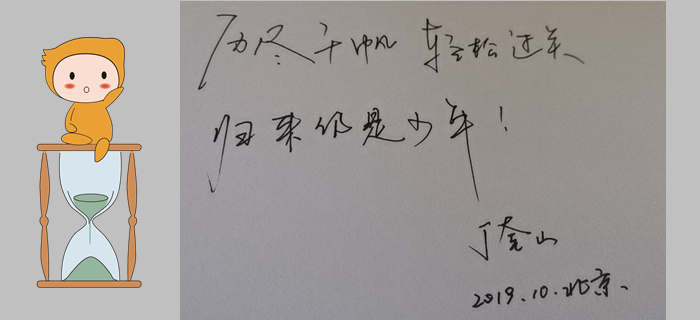 历尽千帆 轻松过关、
归来仍是少年！
丁奎山
2019.10.北京、